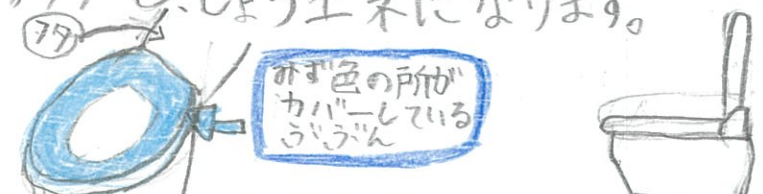 しょうエネになります。
フタ
みず色の所が
カバーしている
ぶぶん